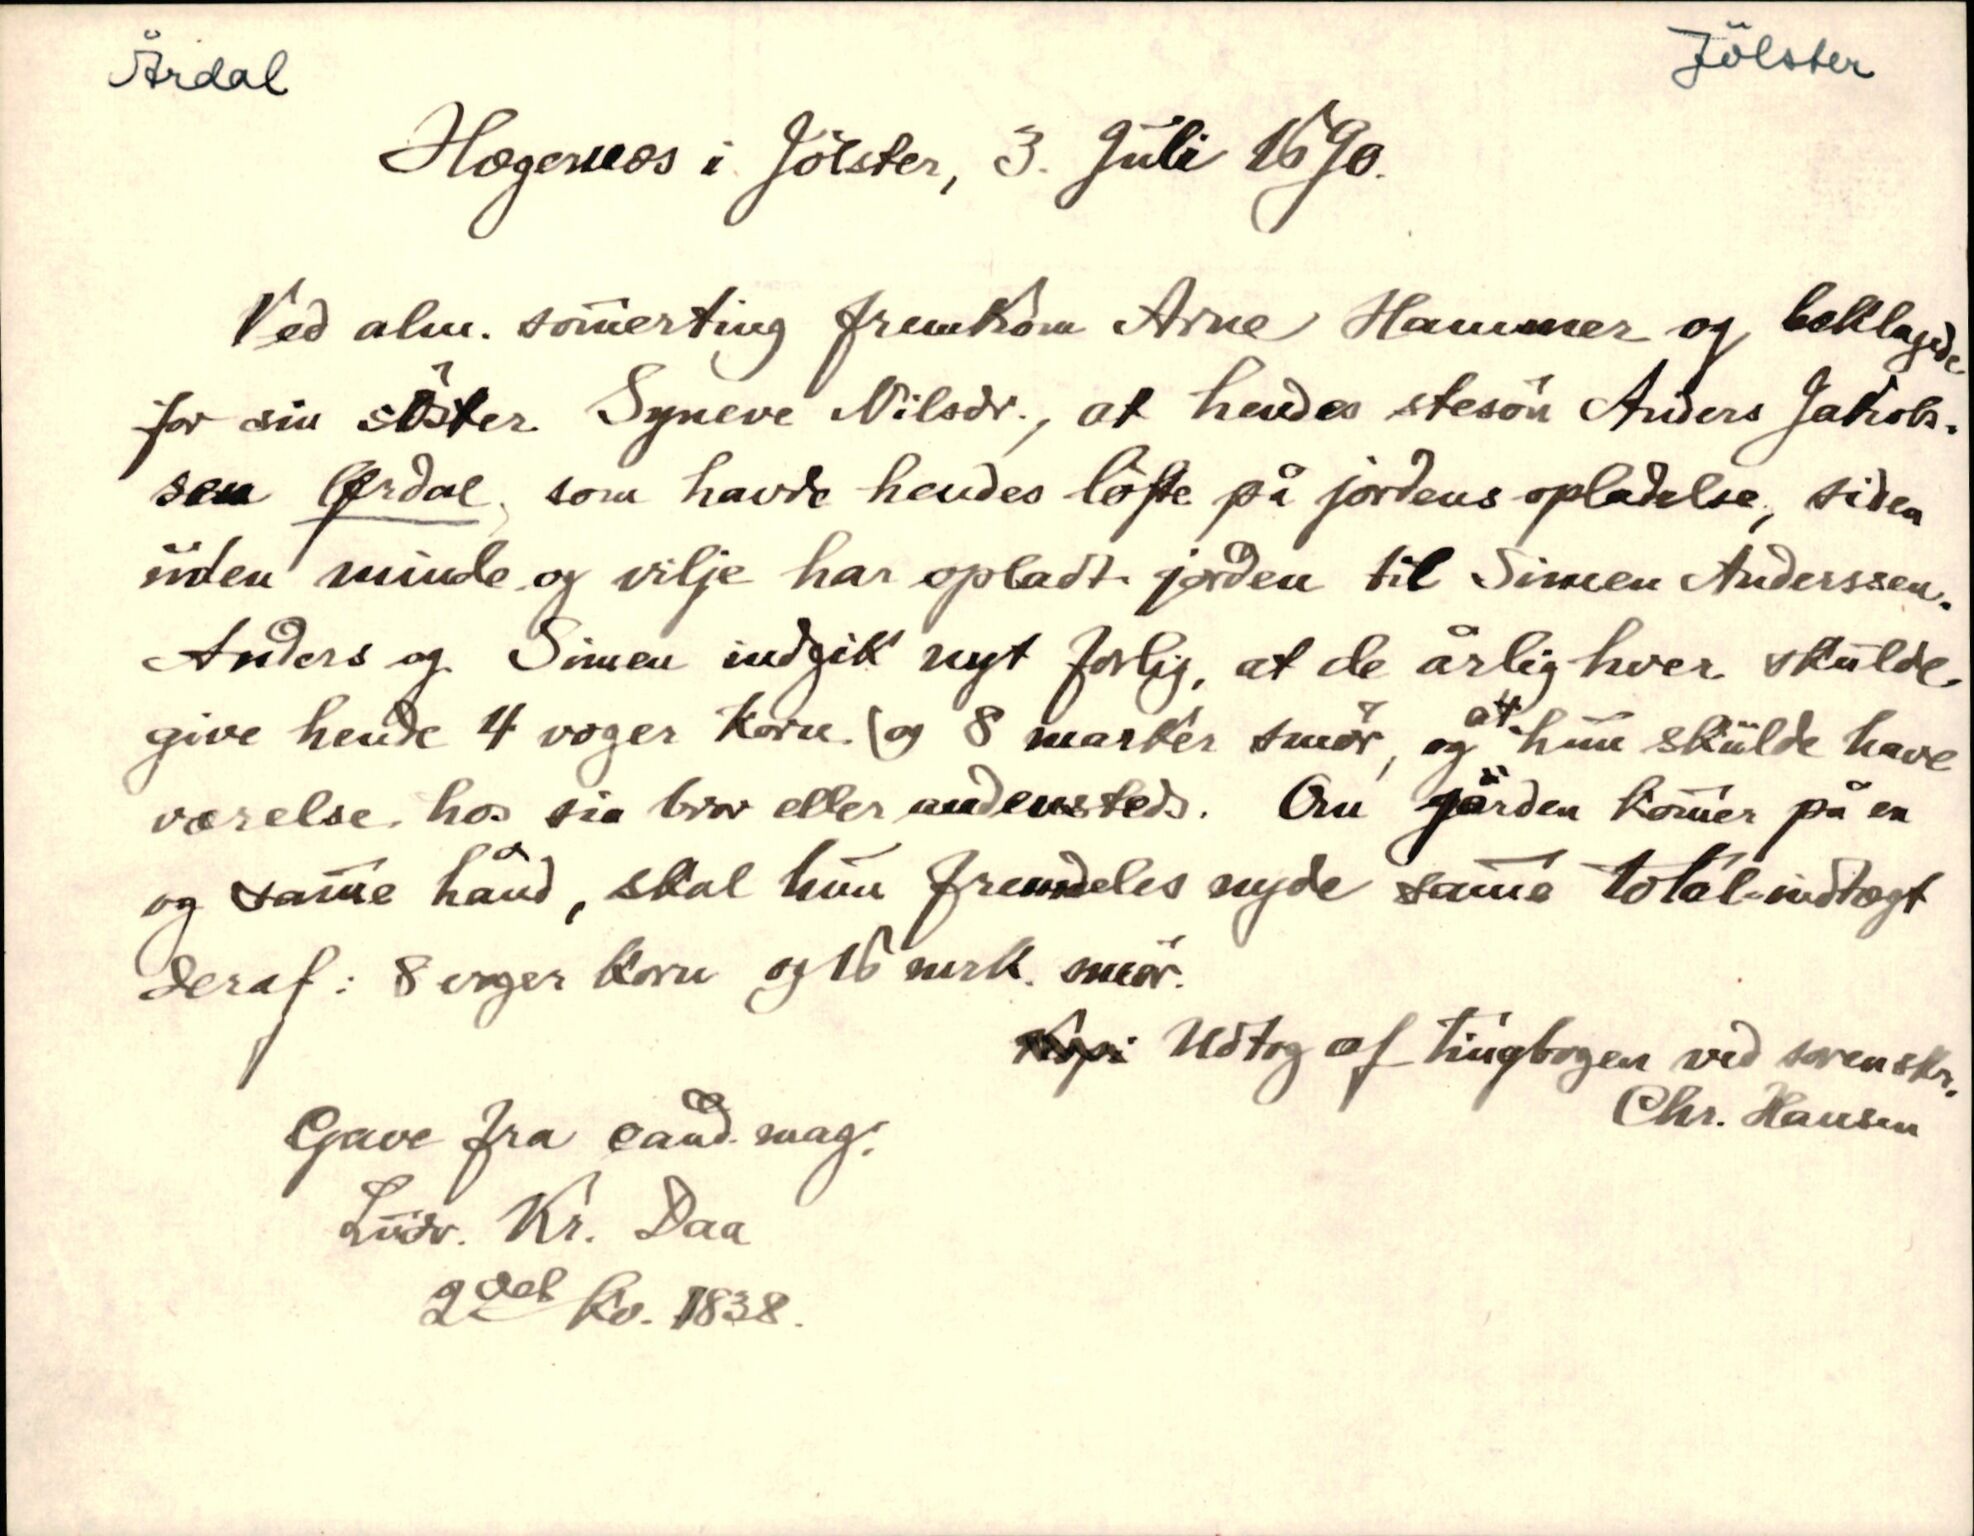 Årdal
Jölster
Hægernæs i Jölster, 3. Juli 1690.
Ved alm. som̄erting fremkom Arne Hammer og beklagede
for sin söster Syneve Nilsdr., at hendes stesön Anders Jakobs-
sen Ørdal, som havde hendes löfte på jordens opladelse, siden
uden minde og vilje har opladt jorden til Simen Anderssen.
Anders og Simen indgik nyt forlig, at de årlig hver skulde
give hende 4 voger korn (og 8 marker smör, og at hun skulde have
værelse hos sin bror eller andensteds. Om gården kom̄er på en
og sam̄e hånd, skal hun fremdeles nyde sam̄e total-indtægt
deraf: 8 voger korn og 16 mrk. smör.
Udtog af tingbogen ved sorenskr.
Chr. Hansen
Gave fra cand. mag.
Ludv. Kr. Daa
2det kv. 1838.